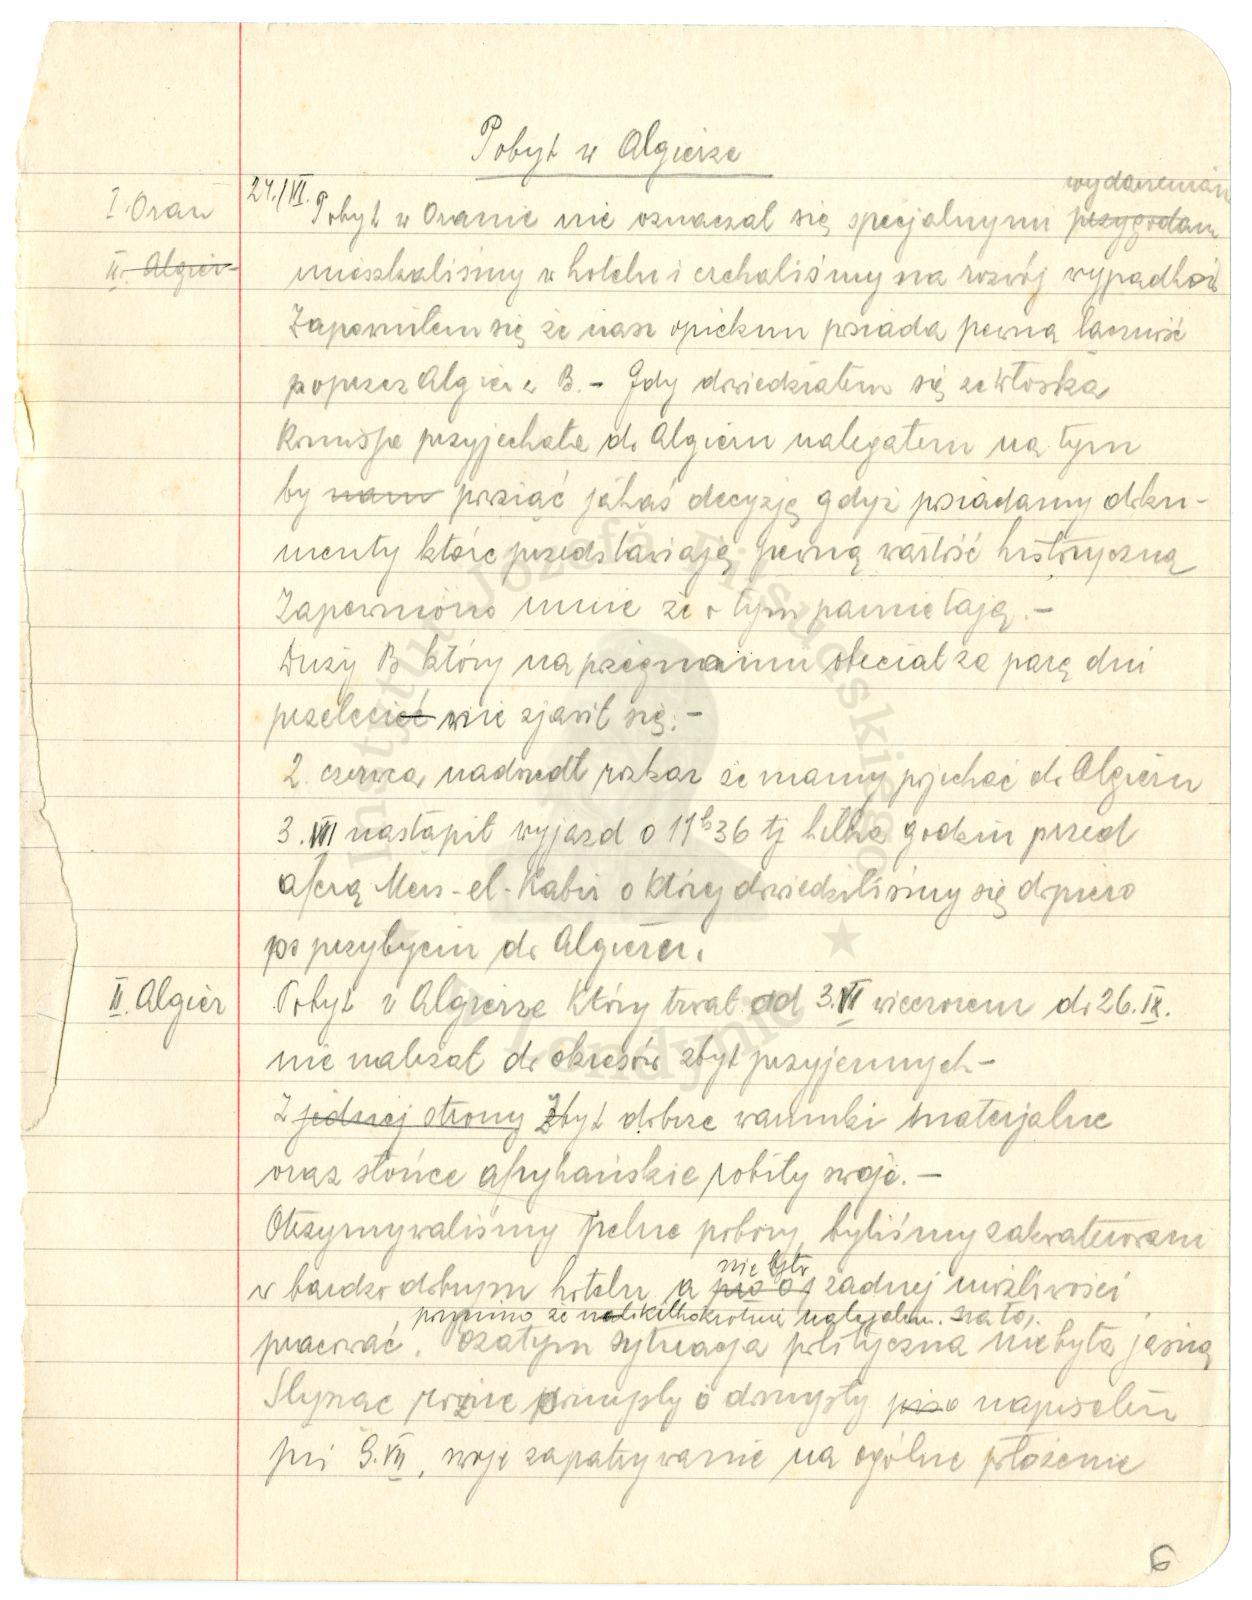 Pobyt w Algierze
I. Oran
24./VI. Pobyt w Oranie nie oznaczał się specjalnymi przygodam wydarzeniam
II. Algier
mieszkaliśmy w hotelu i czekaliśmy na rozwój wypadków
Zapewniłem się że nasz opiekun posiada pewną łączność
poprzez Algier z B. – Gdy dowiedziałem się że Włoska
Komisja przyjechała do Algieru nalegałem na tym
by nam powziąć jakąś decyzję gdyż posiadamy doku-
menty które przedstawiają pewną wartość historyczną
Zapewniono mnie że o tym pamiętają. –
Duży B który na pożegnaniu obiecał za parę dni
przelecieć nie zjawił się. –
2. czerwca nadszedł rozkaz że mamy pojechać do Algieru
3. VII nastąpił wyjazd o 11h36 tj kilka godzin przed
aferą Mers-el-Kabir o której dowiedzieliśmy się dopiero
po przybyciu do Algieru.
II. Algier
Pobyt w Algierze który trwał od 3. VII wieczorem do 26. IX.
nie należał do okresów zbyt przyjemnych –
Z jednej strony Zbyt dobrze warunki materjalne
oraz słońce afrykańskie robiły swoje. –
Otrzymywaliśmy pełne pobory, byliśmy zakwaterowani
w bardzo dobrym hotelu a nie było żadnej możliwości
pomimo że kilkakrotnie nalegałem na to.
pracować. Pozatym sytuacja polityczna nie była jasną
Słysząc różne pomysły i domysły napisałem
9. VII, swoje zapatrywanie na ogólne położenie
6
Instytut Józefa Piłsudskiego
w Londynie